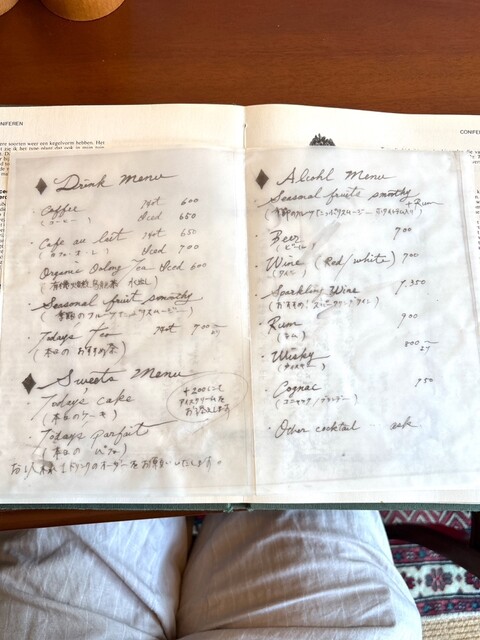 NIFEREN
CONIFE
◆ Drink Menu
・Coffee Hot 600
(コーヒー) Iced 650
・Cafe au lait Hot 650
(カフェ・オ・レ) Iced 700
Organic Oolong Tea Iced 600
(有機 烏龍茶 水出し)
・Seasonal fruit smoothy
(季節のフルーツ スムージー)
・Today's Tea Hot 700~
(本日のおすすめ茶)
◆ Sweets Menu
・Today's cake
(本日のケーキ)
・Today's parfait
(本日の パフェ)
+200にて
アイスクリームを
お 1ドリンクのオーダーをお願いいたします。
◆ Alcohl Menu
Seasonal fruits smothy + Rum
・Beer 700
(ビール)
・Wine (Red/white) 700
(ワイン)
・Sparkling Wine 1,350
(おすすめ! スパークリングワイン)
・Rum 900
(ラム)
・Wisky 800~
(ウィスキー)
・Cognac 950
(コニャック/ブランデー)
・Other cocktail … ask